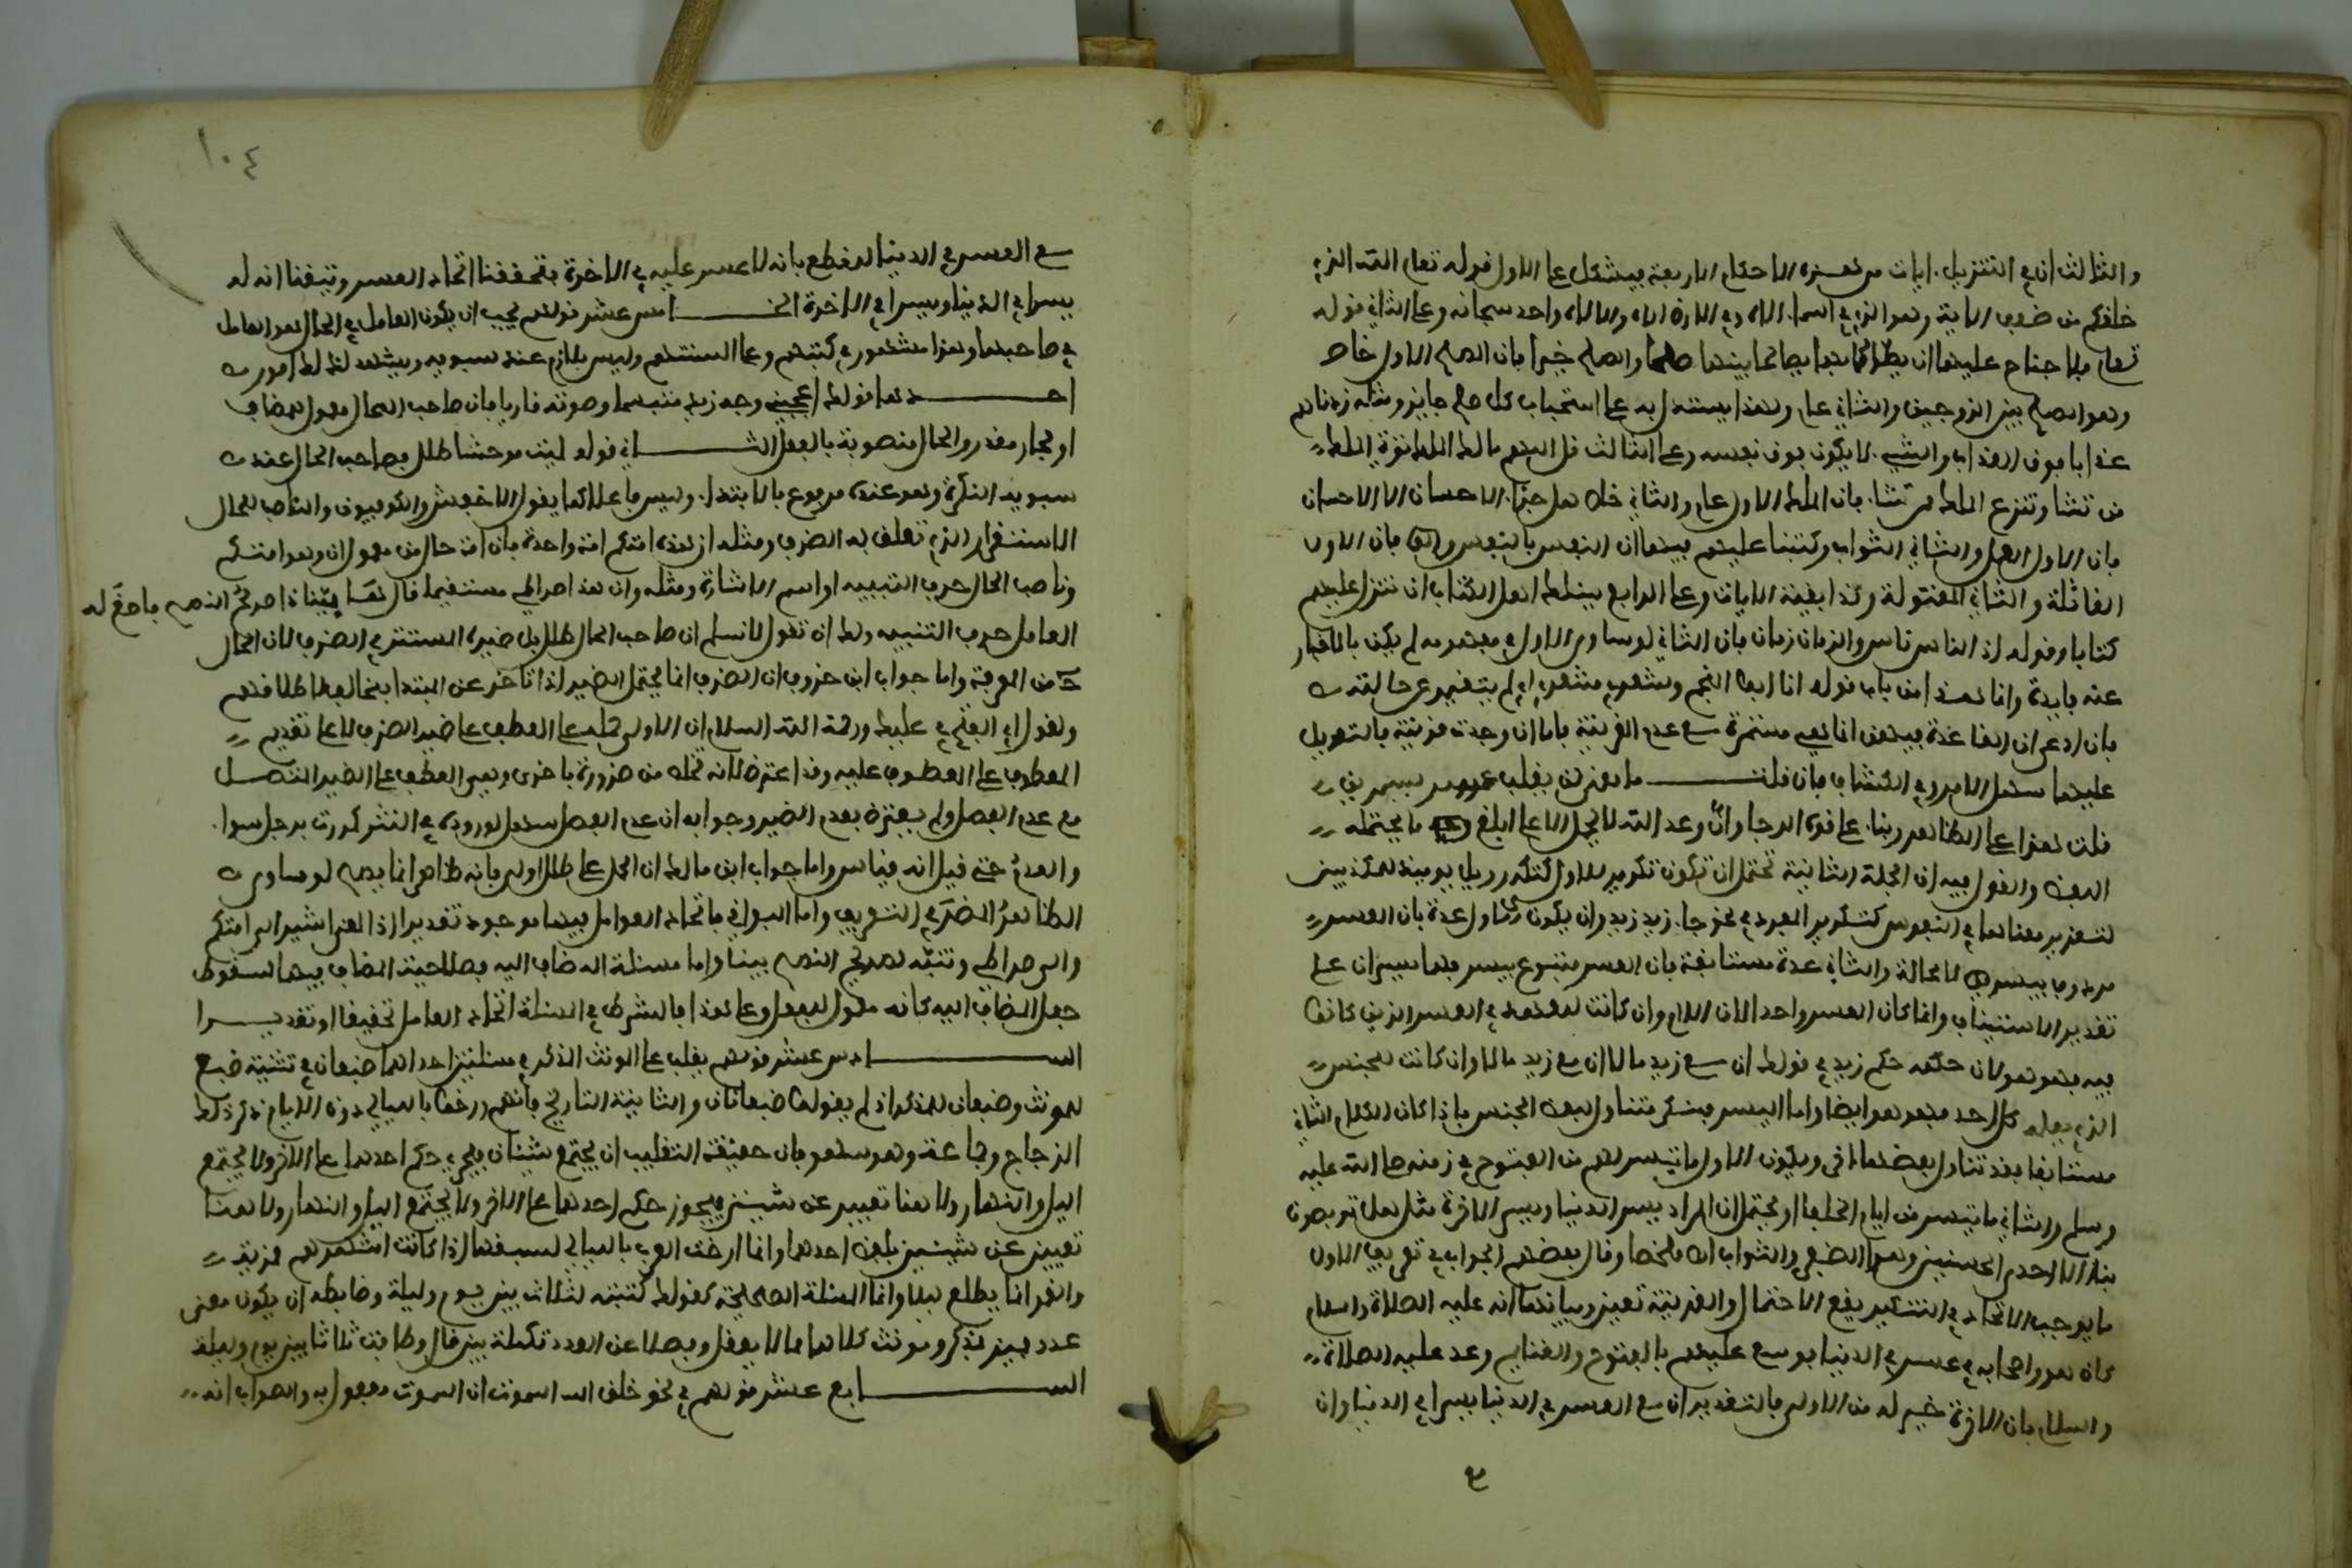 والثالث ان في التنزيل ايات من هذه الاحكام الاربعة فيشكل على الاول قوله تعلى الله الذي
خلقكم من ضعف الاية وهو الذي في السماء الاه وفي الارض الاه والالاه واحد سبحانه وعلى الثاني قوله
تعلى فلا جناح عليهما ان يصالحا بينهما صلحا والصلح خير فان الصلح الاول خاص
وهو الصلح بين الزوجين والثاني عام ولهذا يستدل به على استحباب كل صلح جايز ومثله زدناهم
عذابا فوق العذاب والشيء لا يكون فوق نفسه وعلى الثالث قل اللهم مالك الملك توتي الملك
من تشا وتنزع الملك ممن تشا فان الملك الاول عام والثاني خاص هل جزا الاحسان الا الاحسان
فان الاول العمل والثاني الثواب وكتبنا عليهم فيها ان النفس بالنفس فان الاولى
القاتلة والثانية المقتولة وكذا بقية الايات وعلى الرابع يسئلك اهل الكتاب ان تنزل عليهم
كتابا وقوله اذ الناس ناس والزمان زمان فان الثاني لو ساوى الاول في مفهومه لم يكن بالاخبار
عنه فايدة وانما هذا من باب قوله انا ابو النجم وشعري شعري اي لم يتغير عن حالته
فان ادعى ان القاعدة فيهن انما هي مستمرة مع عدم القرينة فاما ان وجدت قرينة فالتعويل
عليها سهل الامر وفي الكشاف فان قلت ما معنى لن يغلب عسر يسرين
قلت هذا على الظاهر وبنا على قوة الرجا وان وعد الله لا يحمل الا على ابلغ ما يحتمله
اللفظ والقول فيه ان الجملة الثانية تحتمل ان تكون تكرير للاولى كتكرر ويل يومئذ للمكذبين
لتقرير معناها في النفوس كتكرير المفرد في نحو جا زيد زيد وان يكون الاولى عدة بان العسر
مردوف بيسر لا محالة والثاني عدة مستانفة بان العسر متبوع بيسر فهما يسران على
تقدير الاستيناف وانما كان العسر واحدا لان اللام وان كانت للعهد في العسر الذين كانوا
فيه فهو هو لان حكمه حكم زيد في قولك ان مع زيد مالا ان مع زيد مالا وان كانت للجنس
الذي يعلمه كل احد فهو هو ايضا واما اليسر فمنكر متناول لبعض الجنس فاذا كان الكلام الثاني
مستانفا فقد تناول بعضا اخر ويكون الاول ما تيسر لهم من الفتوح في زمنه صلى الله عليه
وسلم والثاني ما تيسر من ايام الخلفا او يحتمل ان المراد يسر الدنيا ويسر الاخرة مثل هل تربصون
بنا الا احدى الحسنيين وهما الظفر والثواب اه ملخصا وقال بعضهم الجواب في تعريف الاول
ما يوجب الاتحاد وفي التنكير يقع الاحتمال والقرينة تعين وبيانها انه عليه الصلاة والسلام
كان هو واصحابه في عسر في الدنيا فوسع عليهم بالفتوح والغنايم وعد عليه الصلاة
والسلام بان الاخرة خير له من الاولى فالتقدير ان مع العسر في الدنيا يسرا في الدنيا وان
١٠٤
مع العسر في الدنيا للقطع بانه لا عسر عليه في الاخرة فتحققنا اتحاد العسر وتيقنا ان له
يسرا في الدنيا ويسرا في الاخرة الخامس عشر قولهم يجب ان يكون العامل في الحال هو العامل
في صاحبها وهذا مشهور في كتبهم وعلى السنتهم وليس بلازم عند سيبويه ويشهد لذلك امور
احدها قولك اعجبني وجه زيد متبسما وصوته قاريا فان صاحب الحال معمول للمضاف
او لجار مقدر والحال منصوبة بالفعل الثاني قوله لمية موحشا طلل فصاحب الحال عند
سيبويه النكرة وهو عنده مرفوع بالابتدا وليس فاعلا كما يقول الاخفش والكوفيون والناصب للحال
الاستقرار الذي تعلق به الظرف ومثله ان هذه امتكم امة واحدة فان امة حال من معمول ان وهو امتكم
وناصب الحال حرف التنبيه او اسم الاشارة ومثله وان هذا صراطي مستقيما وقال ها بينا ذا صريح النصح فاصغ له
العامل حرف التنبيه ولك ان تقول لا نسلم ان صاحب الحال طلل بل ضميره المستتر في الظرف لان الحال
ح من المعرفة واما جواب ابن خروف ان الظرف انما يحتمل الضمير اذا تاخر عن المبتدا فمخالف لاطلاقهم
ولقول ابي الفتح في عليك ورحمة الله السلام ان الاولى حمله على العطف على ضمير الظرف لا على تقديم
المعطوف على المعطوف عليه وقد اعترض بانه تخلص من ضرورة باخرى وهي العطف على الضمير المتصل
مع عدم الفصل ولم يعترض بعدم الضمير وجوابه ان عدم الفصل سهل لوروده في النثر كمررت برجل سوا
والعدم حتى قيل انه قياس واما جواب ابن مالك ان الحمل على طلل اولى فانه ظاهر انما يصح لو ساوى
الظاهر الضمير في التعريف واما البواقي فاتحاد العوامل فيها موجود تقديرا اذ المعنى اشير الى امتكم
والى صراطي وتنبه لصريح النصح بينا واما مسئلة المضاف اليه فصلاحية المضاف فيهما للسقوط
جعل المضاف اليه كانه معمول للفعل وعلى هذا فالشرط في المسئلة اتحاد العامل تحقيقا او تقديرا
السادس عشر قولهم يغلب على المونث المذكر في مسئلتين احداهما ضبعان في تثنية ضبع
للمونث وضبعان للمذكر اذ لم يقولوا ضبعانان والثانية التاريخ فانهم ارخوا بالليالي دون الايام ذكر ذلك
الزجاجي وجماعة وهو سهو فان حقيقة التغليب ان يجتمع شيئان فيجري حكم احدهما على الاخر ولا يجتمع
الليل والنهار ولا هنا تعبير عن شيئين فيجوز حكم احدهما على الاخر ولا يجتمع الليل والنهار ولا هنا
تعبير عن شيئين بلفظ احدهما وانما ارخت العرب بالليالي لسبقها اذا كانت اشهرهم قمرية
والقمر انما يطلع ليلا وانما المسئلة الصحيحة كقولك كتبته لثلاث بين يوم وليلة وضابطه ان يكون معنى
عدد مميز بمذكر ومونث كلاهما مما لا يعقل وفصلا عن العدد بكلمة بين قال وطافت ثلاثا بين يوم وليلة
السابع عشر قولهم في نحو خلق الله السموت ان السموت مفعول به والصواب انه